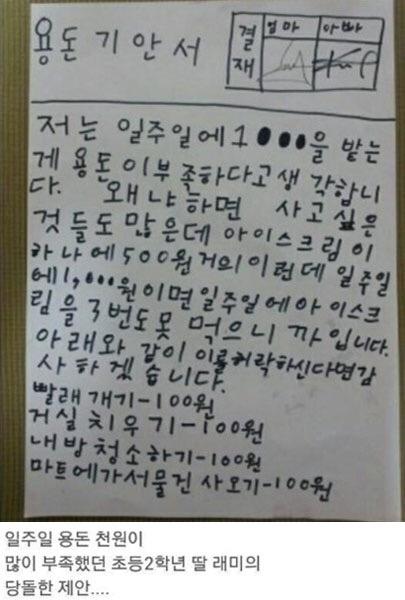 용돈기안서
결재 엄마 아빠
저는 일주일에 1000을 받는
게 용돈이부족하다고생각합니
다. 왜냐하면 사고싶은
것들도많은데 아이스크림이
하나에500원거의이런데 일주일
에1,000원이면일주일에아이스크
림을 3번도못 먹으니까입니다.
아래와 같이 이를허락하신다면감
사하겠습니다.
빨래개기-100원
거실치우기-100원
내방청소하기-100원
마트에가서물건사오기-100원
일주일 용돈 천원이
많이 부족했던 초등2학년 딸 래미의
당돌한 제안....